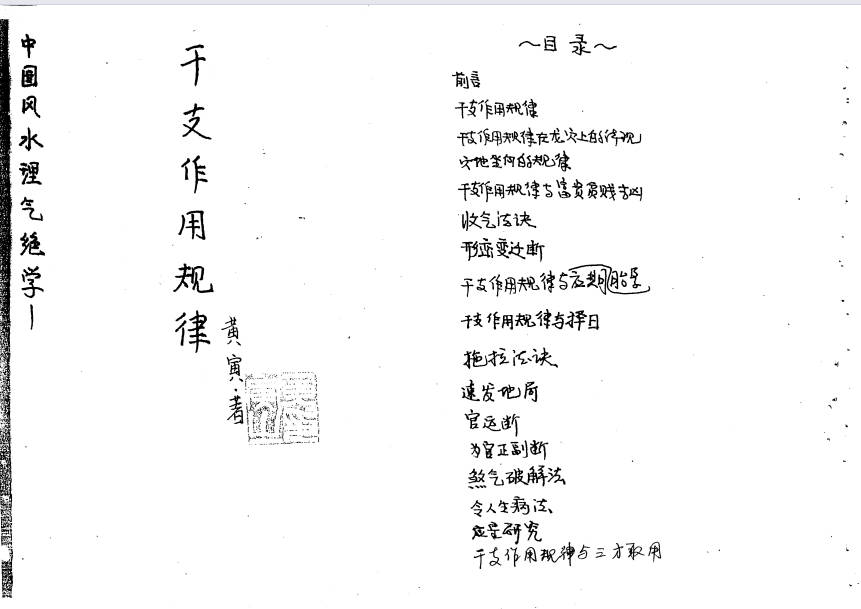 中国风水理气绝学一
干支作用规律
黄寅·著
～目录～
前言
干支作用规律
干支作用规律在龙穴上的体现
穴地坐向的规律
干支作用规律与富贵贫贱吉凶
收气法诀
形峦变迁断
干支作用规律与应期
干支作用规律与择日
拖拉法诀
速发地局
官运断
为官正副断
煞气破解法
令人生病法
研究
干支作用规律与三才取用